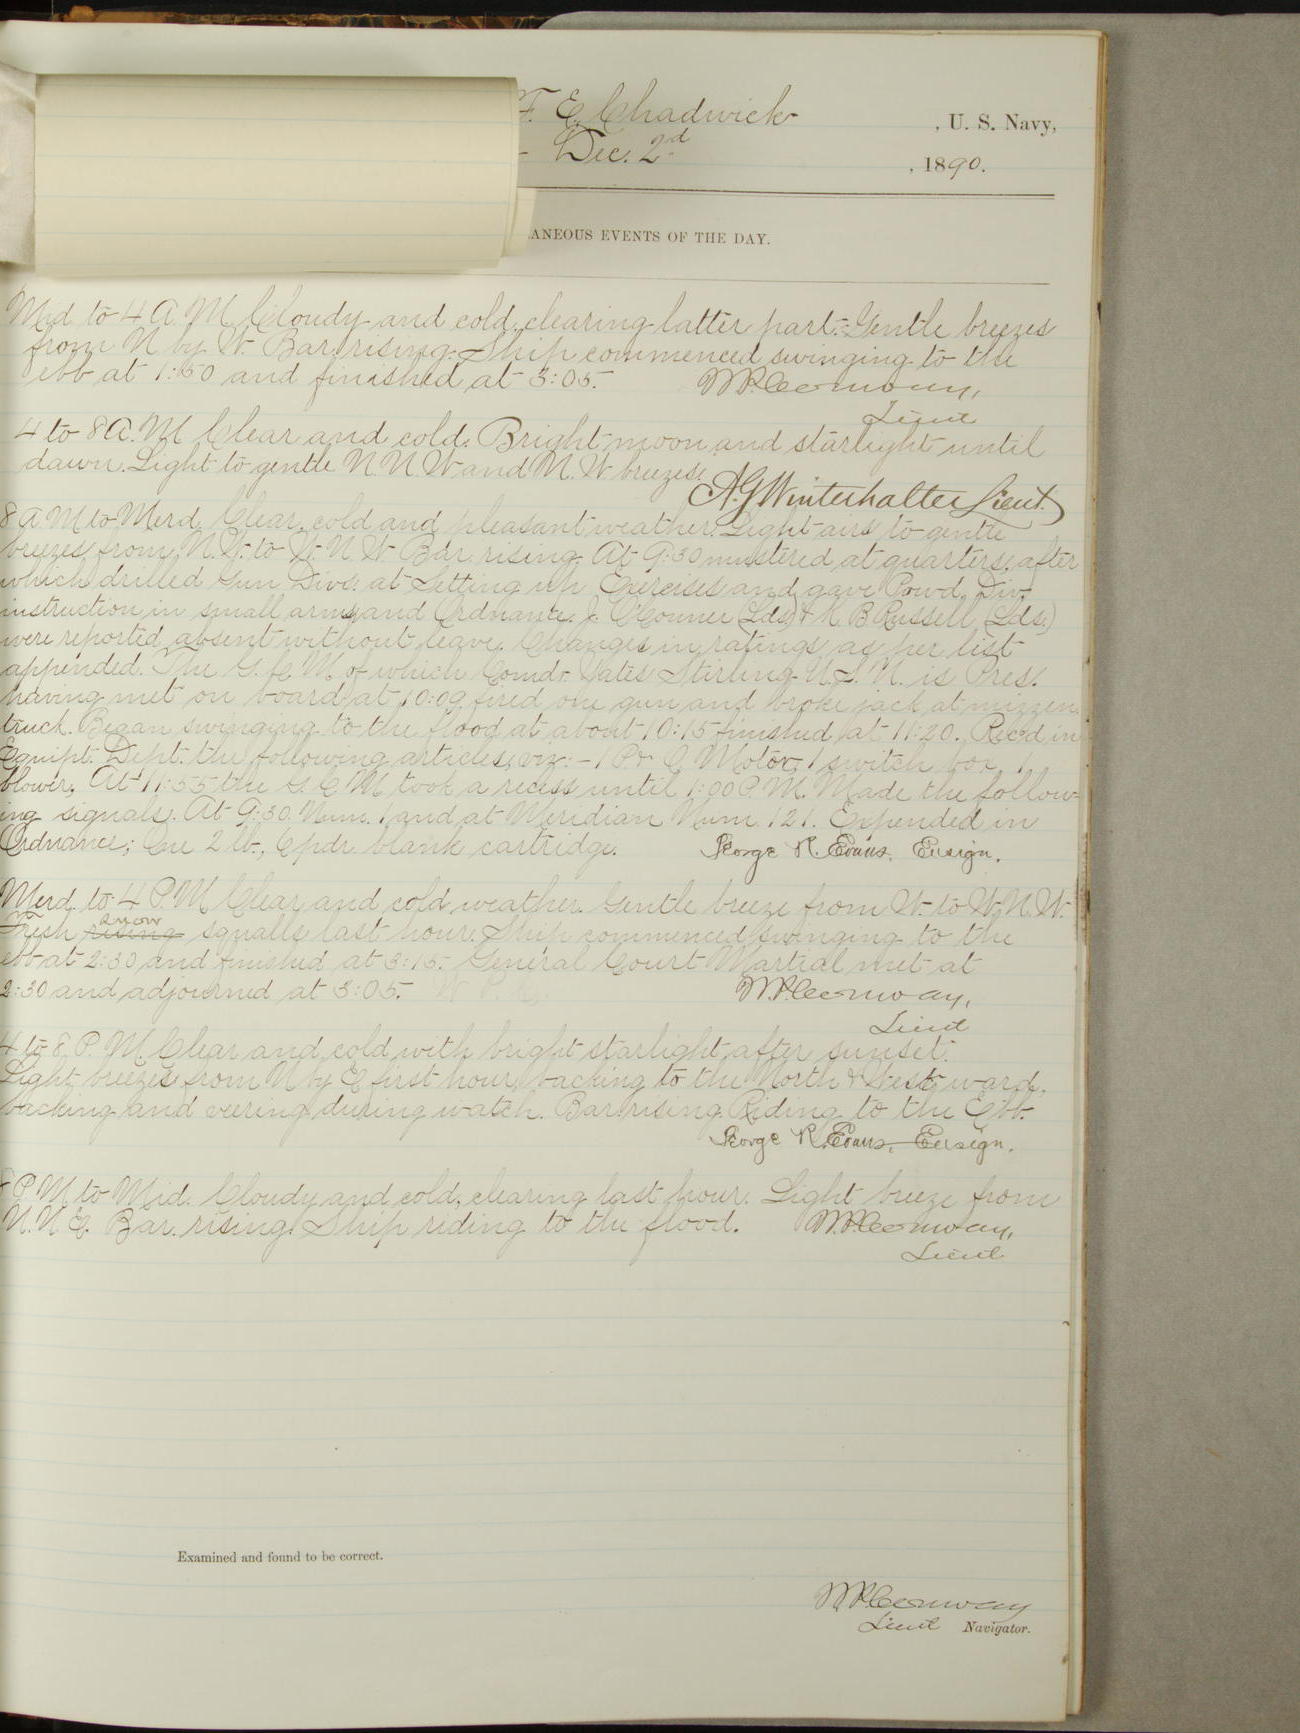 F. E. Chadwick , U. S. Navy,
Dec. 2d , 1890.
LANEOUS EVENTS OF THE DAY.
Mid to 4 A. M. Cloudy and cold, clearing latter part. Gentle breezes
from N by W. Bar. rising. Ship commenced swinging to the
ebb at 1:50 and finished at 3:05. W. P. Conway,
Lieut
4 to 8 A. M. Clear and cold. Bright moon and starlight until
dawn. Light to gentle N. N. W and N. W. breezes.
A G Winterhalter Lieut.
8 A M to Merd. Clear, cold and pleasant weather. Light airs to gentle
breezes from N. W. to W. N. W. Bar rising. At 9:30 mustered at quarters, after
which drilled Gun Divs. at Setting up Exercises and gave Powd. Div.
instruction in small arms and Ordnance. J. O'Conner (Lds) & H. B Russell (Lds.)
were reported absent without leave. Changes in ratings as per list
appended. The G. C. M. of which Comdr. Yates Stirling U. S. N. is Pres.
having met on board at 10:09 fired one gun and broke jack at mizzen
truck. Began swinging to the flood at about 10:15 finished at 11:20. Rec'd in
Equipt. Dept. the following articles, viz:- 1 Motor, 1 switch box, 1
blower. At 11:55 the G. C M took a recess until 1:00 P. M. Made the follow-
ing signals. At 9:30. Num. 1 and at Meridian Num. 121. Expended in
Ordnance; One 2 lb., 6 pdr. blank cartridge. George R. Evans, Ensign.
Merd. to 4 P. M. Clear and cold weather. Gentle breeze from W. to W. N. W.
snow
Fresh rising squalls last hour. Ship commenced swinging to the
ebb at 2:30 and finished at 3:15. General Court Martial met at
2:30 and adjourned at 3:05. W. P. Conway,
Lieut
4 to 8 P. M. Clear and cold with bright starlight after sunset.
Light breezes from N by E first hour, backing to the North & West ward,
backing and veering during watch. Bar. rising. Riding to the Ebb.
George R. Evans, Ensign.
8 P M to Mid. Cloudy and cold, clearing last hour. Light breeze from
N. N E. Bar. rising. Ship riding to the flood. W. P. Conway,
Lieut
Examined and found to be correct.
W P Conway
Lieut Navigator.